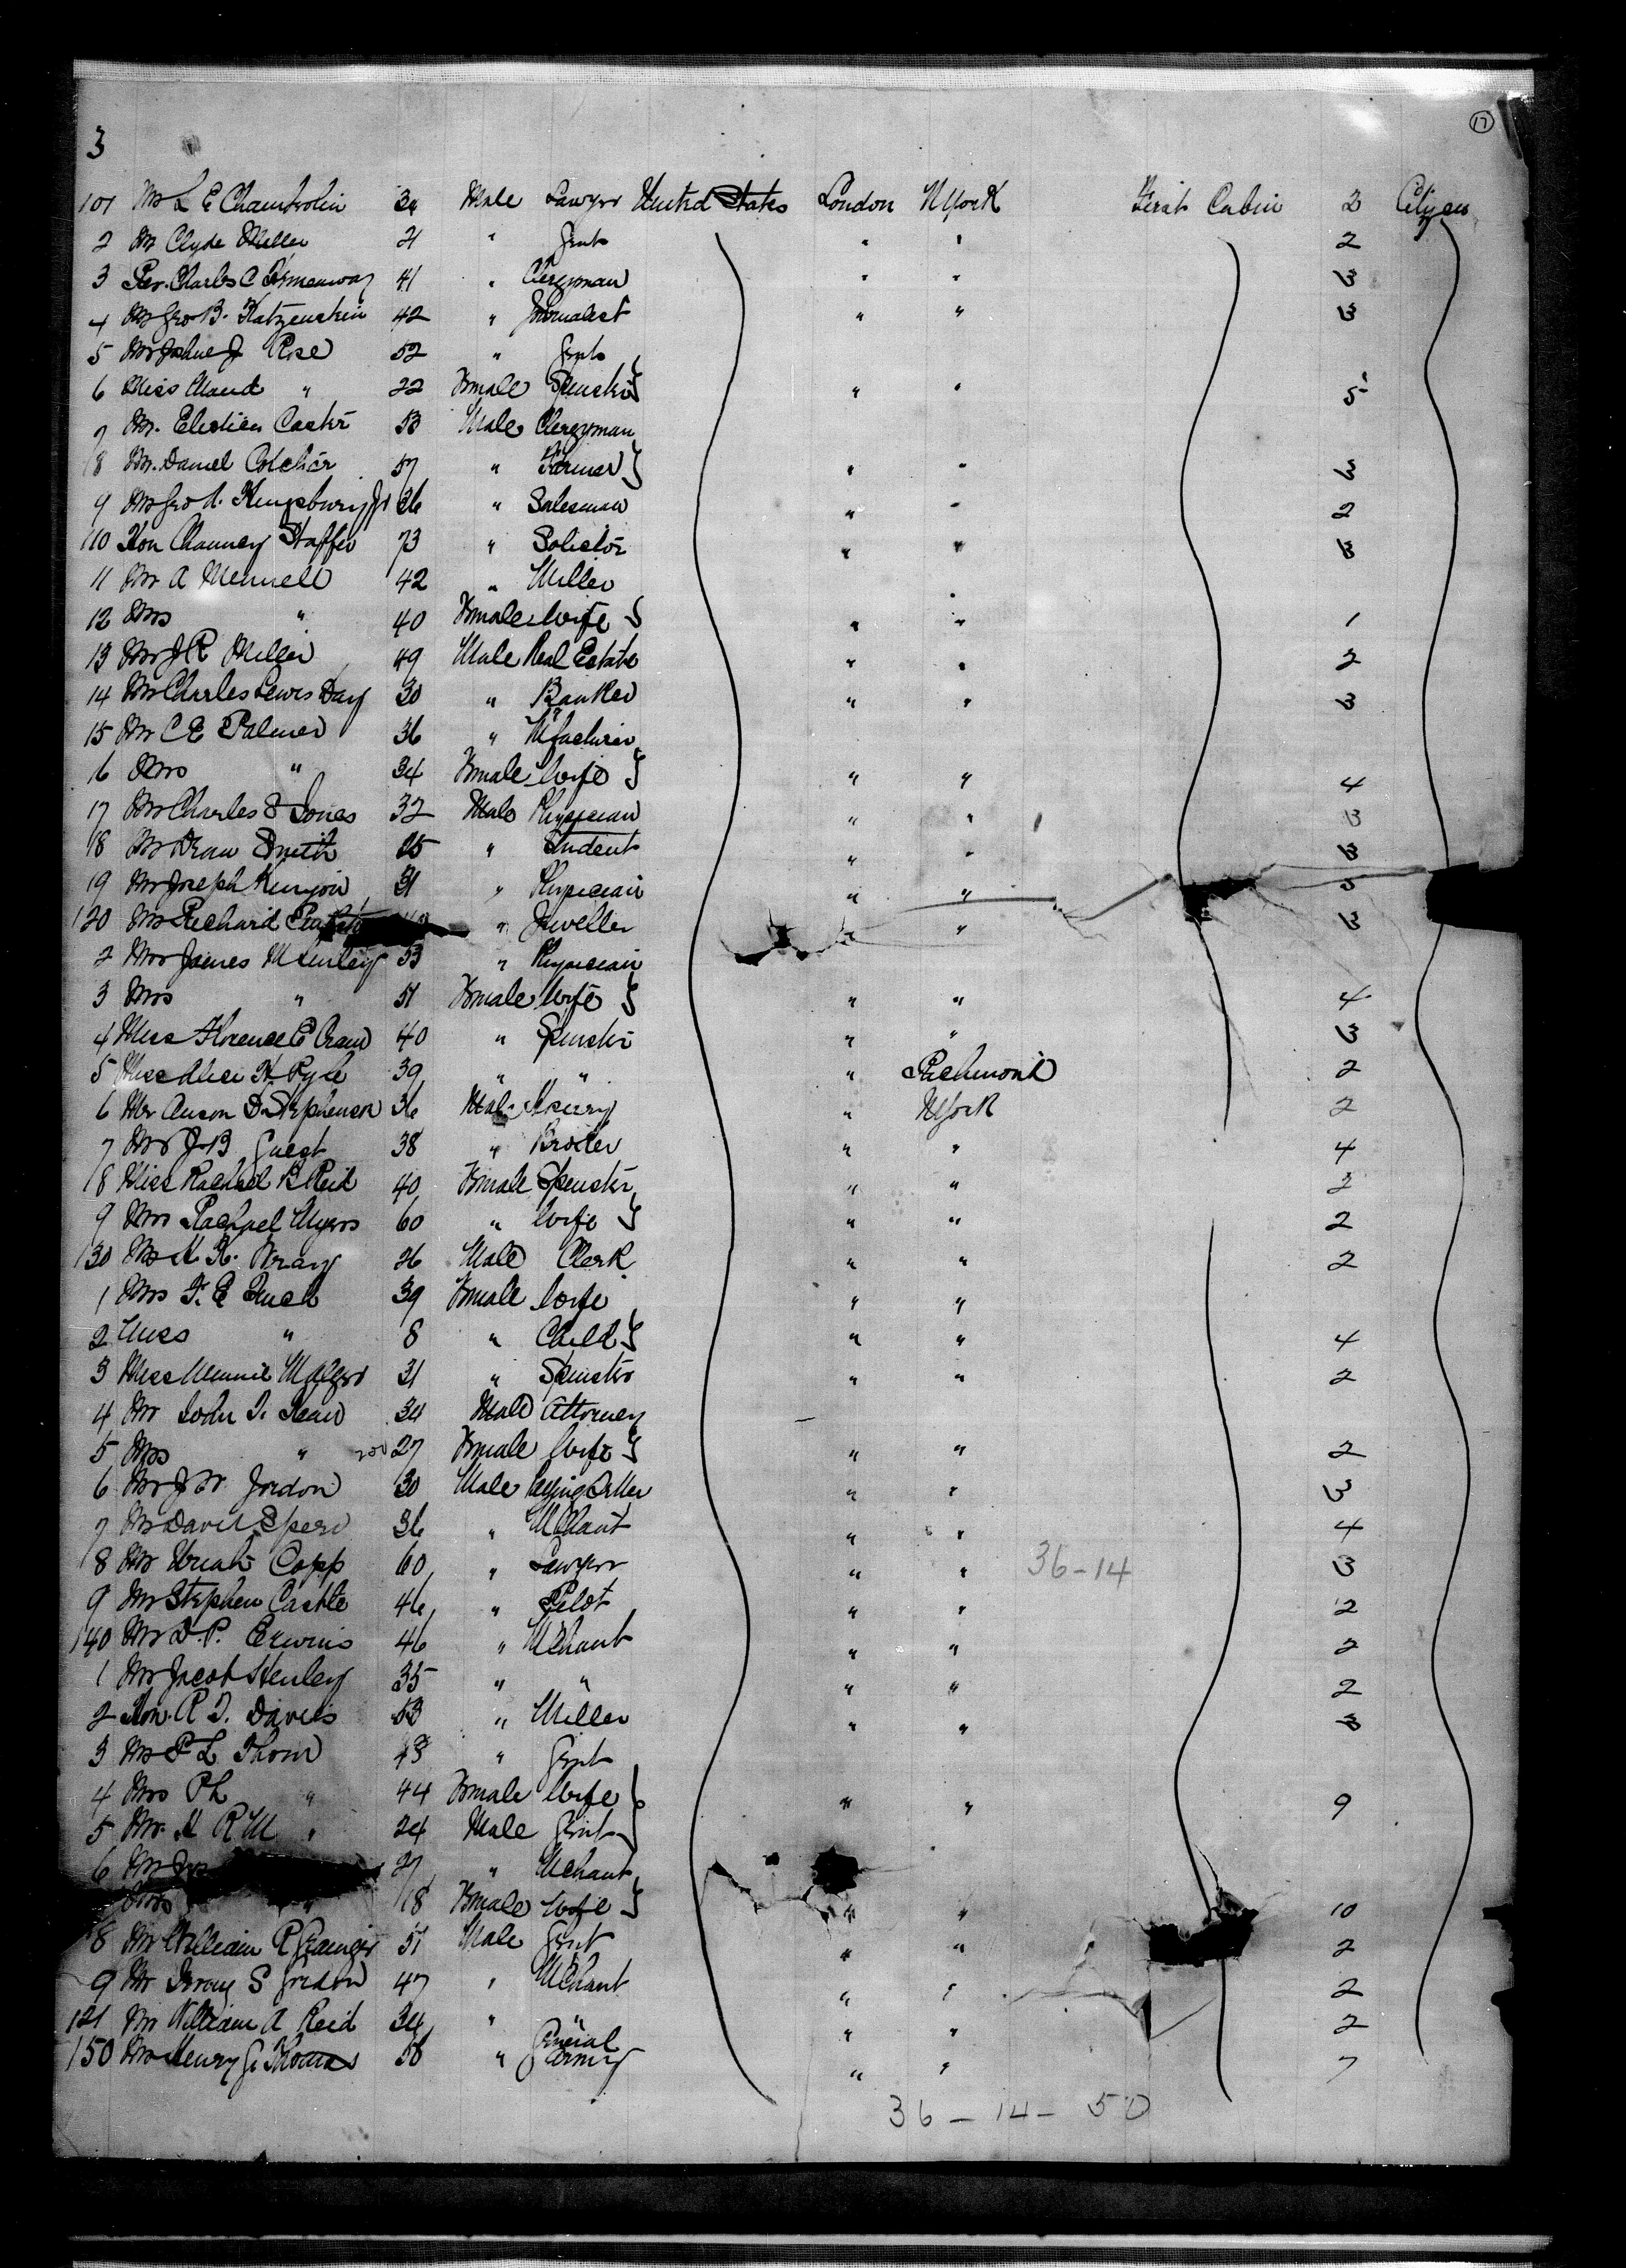 17
3
101 Mr L E Chamberlin 34 Male Lawyer United States London NYork First Cabin 2 Citizen
2 Mr Clyde Miller 21 " Gent " " 2
3 Rev. Charles C 41 " Clergyman " " 3
4 Mr Geo B. Katzenstein 42 " Journalist " " 3
5 Mr J Rose 52 " Gent
6 Miss Maud " 22 Female Spinster " " 5
7 Mr. Caster 53 Male Clergyman
8 Mr. Daniel 57 " Farmer " " 3
9 Mr Geo A. Kingsbury Jr 36 " Salesman " " 2
110 Hon Chauncy 73 " Solicitor " " 3
11 Mr A Mennell 42 " Miller
12 Mrs " 40 Female Wife " " 1
13 Mr J R Miller 49 Male Real Estate " " 2
14 Mr Charles Lewis Day 30 " Banker " " 3
15 Mr C E Palmer 36 " Mfacturer
16 Mrs " 34 Female Wife " " 4
17 Mr Charles S Jones 32 Male Physician " " 3
18 Mr Smith 25 " Student " " 3
19 Mr Joseph Kenyon 31 " Physician " " 3
120 Mr Richard " Jeweller " " 3
2 Mr James McKinley 53 " Physician
3 Mrs " 51 Female Wife " " 4
4 Miss Florence E Crane 40 " Spinster " " 3
5 Miss Alice H. Pyle 39 " " " Richmond 2
6 Mr Anson D. Stephenson 36 Male " NYork 2
7 Mr J B Guest 38 " Broker " " 4
8 Miss Rachael B Reid 40 Female Spinster " " 2
9 Mrs Rachael Myers 60 " Wife " " 2
130 Mr Wray 26 Male Clerk " " 2
1 Mrs F. E 39 Female Wife " "
2 Miss " 8 " Child " " 4
3 Miss Minnie 31 " Spinster " " 2
4 Mr John T. Kean 34 Male Attorney
5 Mrs " 27 Female Wife " " 2
6 Mr J W. Jordon 30 Male Paying Teller " " 3
7 Mr David 36 " Mchant " " 4
8 Mr Uriah Copp 60 " Lawyer " " 36-14 3
9 Mr Stephen Castle 46 " Pilot " " 2
140 Mr D. P. Erwin 46 " Mchant " " 2
1 Mr Jacob Henley 35 " " " " 2
2 Hon. R T. Davis 53 " Miller " " 3
3 Mr P L Thom 43 " Gent
4 Mrs P L " 44 Female Wife " " 9
5 Mr. R M " 24 Male Gent
6 Mr 27 " Mchant
Mrs " 18 Female Wife " " 10
8 Mr William R 51 Male Gent " " 2
9 Mr S Gordon 47 " Mchant " " 2
121 Mr William A Reid 34 " " " " 2
150 Mr Henry G. Thomas 58 " General Army " " 7
36 - 14 - 50